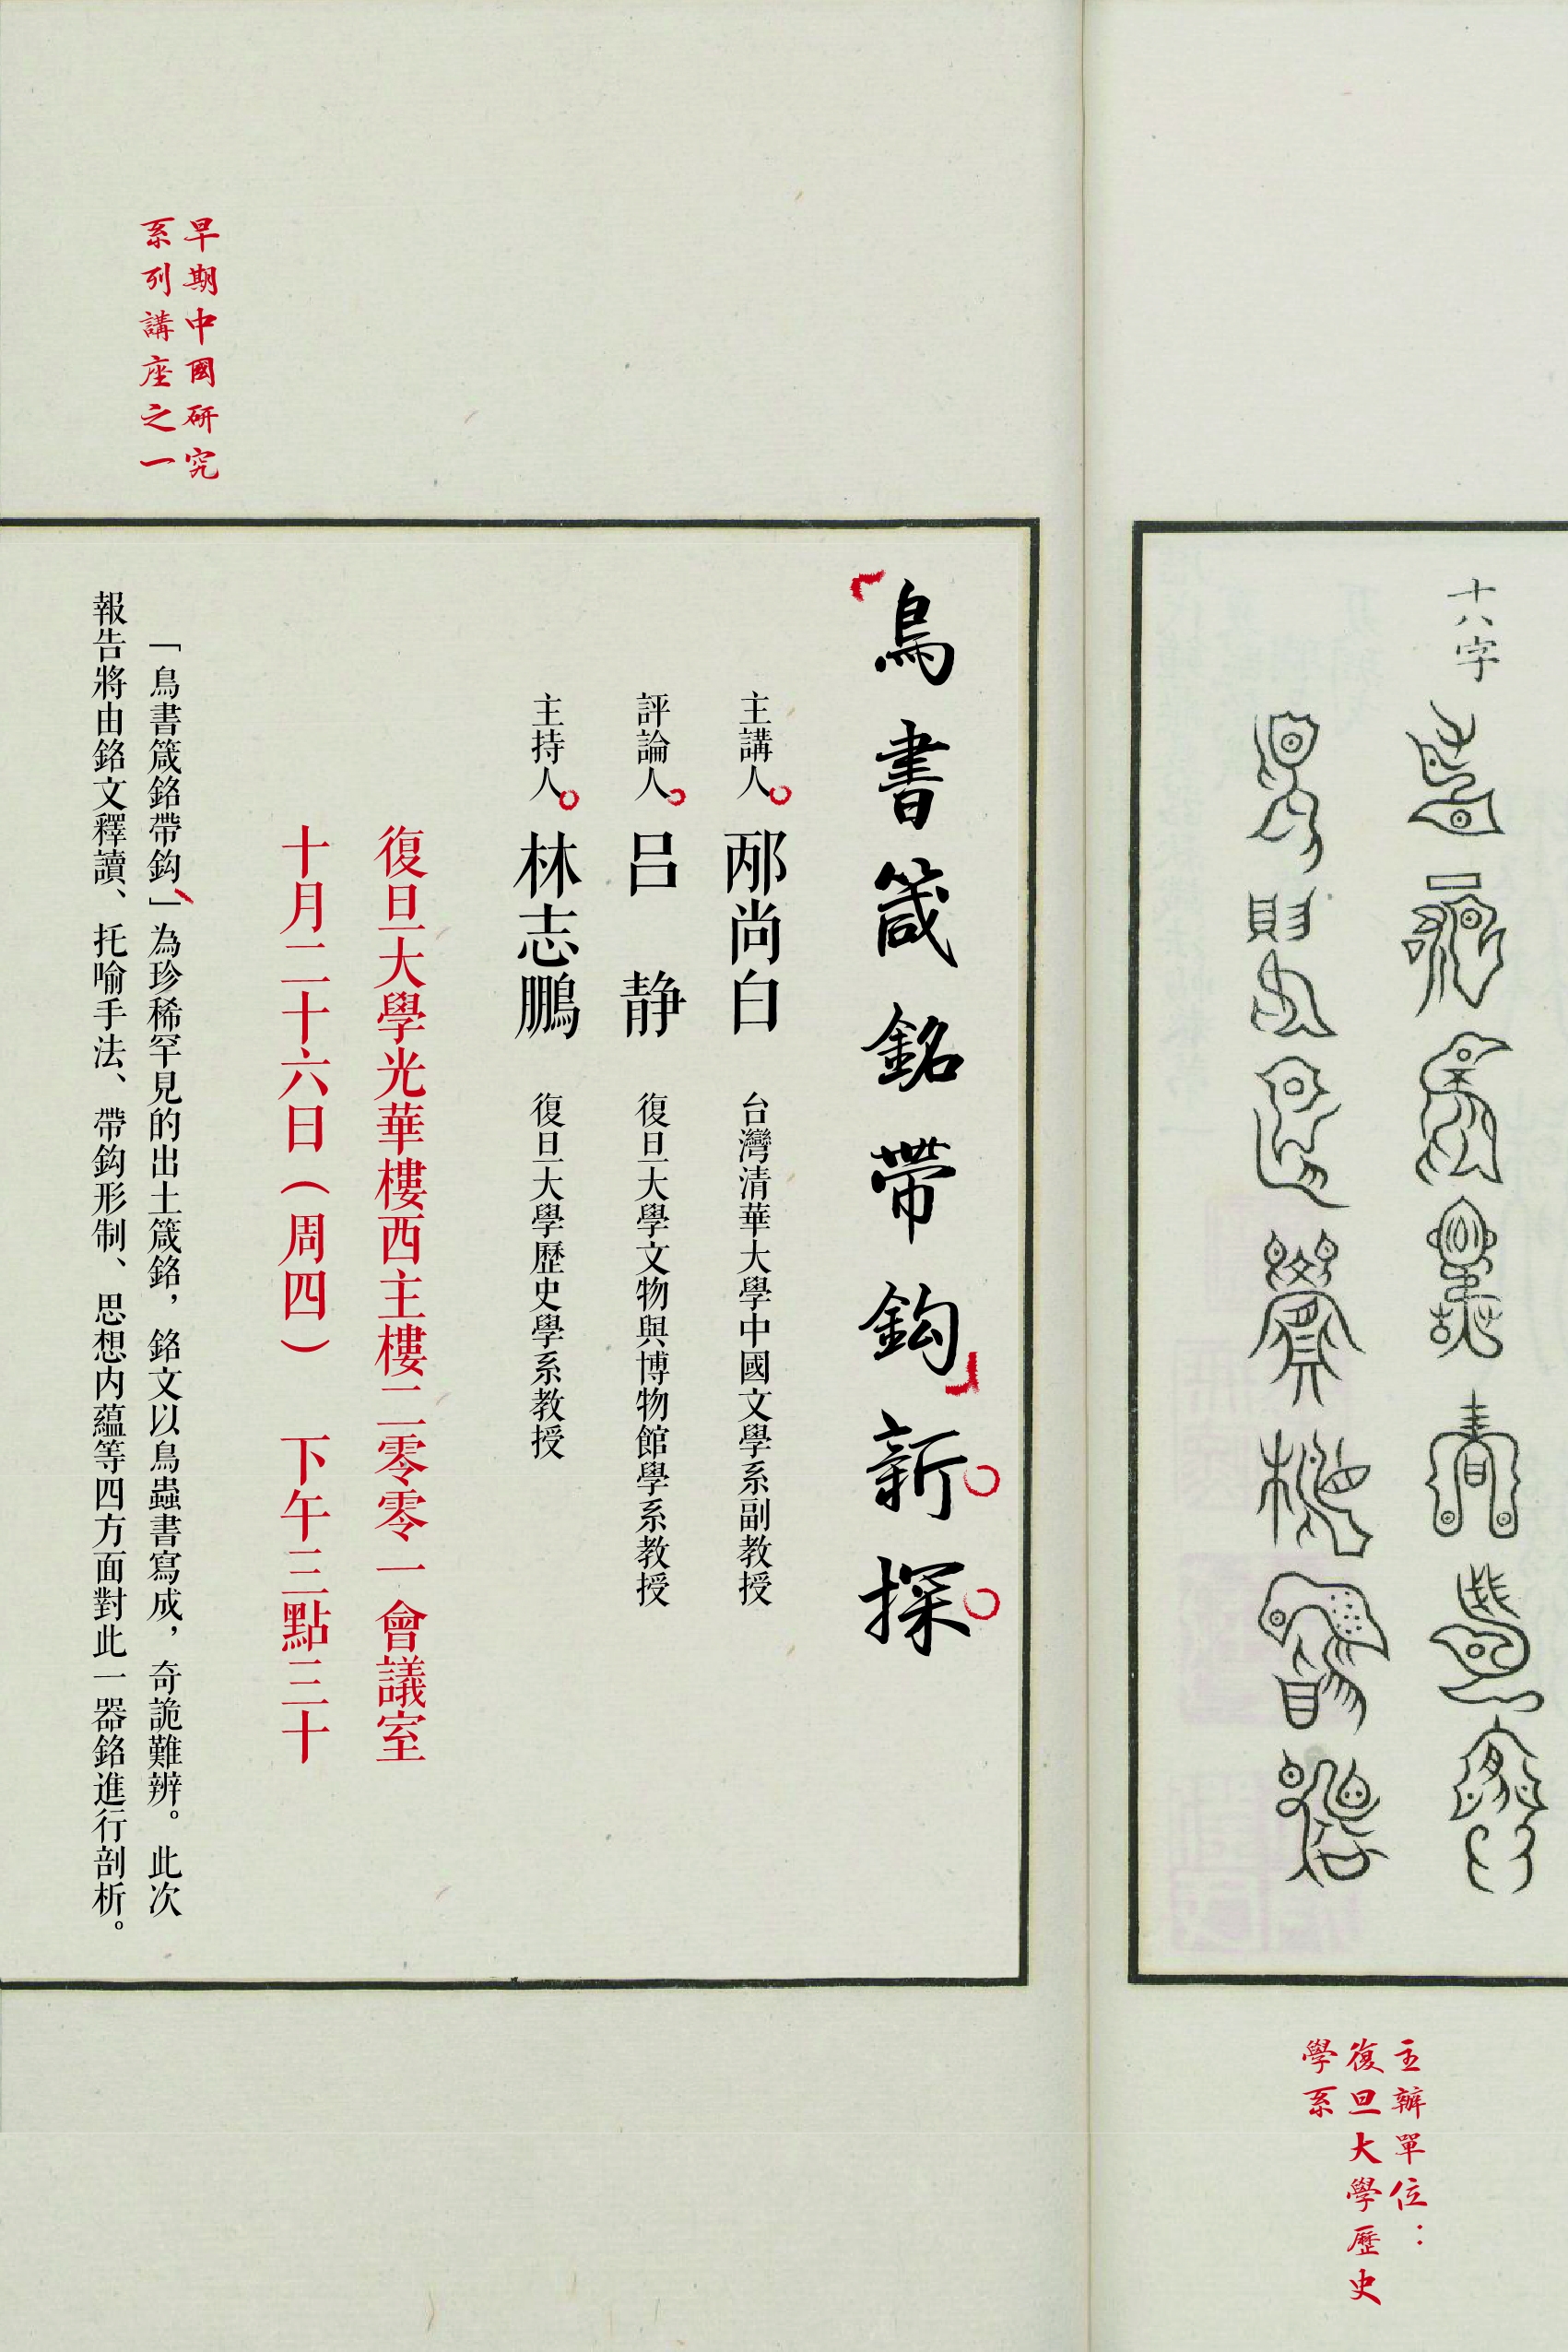 十八字
「鳥書箴銘帶鈎」新探
主講人 邴尚白 台灣清華大學中國文學系副教授
評論人 呂靜 復旦大學文物與博物館學系教授
主持人 林志鵬 復旦大學歷史學系教授
復旦大學光華樓西主樓二零零一會議室
十月二十六日（周四） 下午三點三十
「鳥書箴銘帶鈎」為珍稀罕見的出土箴銘，銘文以鳥蟲書寫成，奇詭難辨。此次
報告將由銘文釋讀、托喻手法、帶鈎形制、思想内蘊等四方面對此一器銘進行剖析。
早期中國研究
系列講座之一
主辦單位：
復旦大學歷史
學系